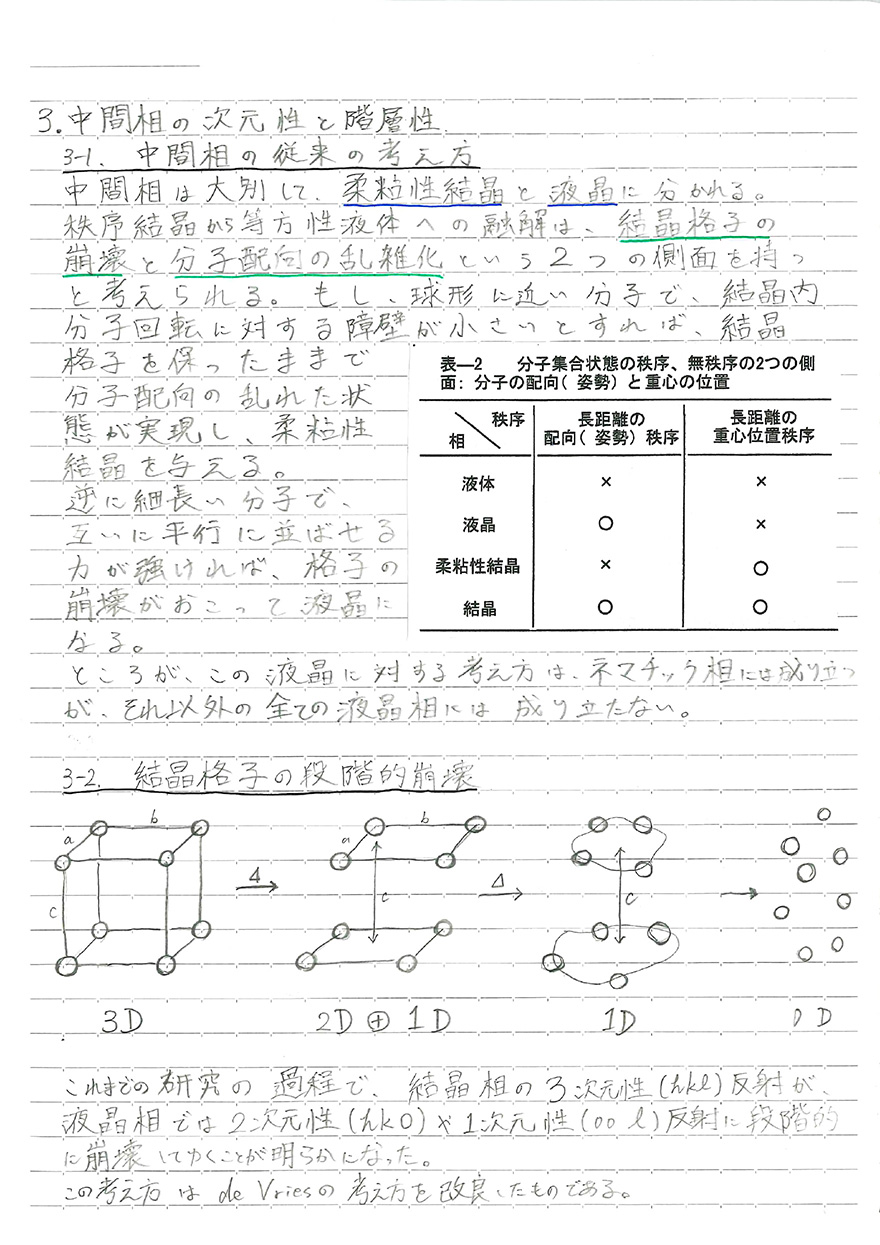 3. 中間相の次元性と階層性
3-1. 中間相の従来の考え方
中間相は大別して、柔粘性結晶と液晶に分かれる。
秩序結晶から等方性液体への融解は、結晶格子の
崩壊と分子配向の乱雑化という2つの側面を持つ
と考えられる。もし、球形に近い分子で、結晶内
分子回転に対する障壁が小さいとすれば、結晶
格子を保ったままで
分子配向の乱れた状
態が実現し、柔粘性
結晶を与える。
逆に細長い分子で、
互いに平行に並ばせる
力が強ければ、格子の
崩壊がおこって液晶に
なる。
表―2 分子集合状態の秩序、無秩序の2つの側
面: 分子の配向( 姿勢) と重心の位置
秩序 相 長距離の配向( 姿勢) 秩序 長距離の重心位置秩序
液体 × ×
液晶 ○ ×
柔粘性結晶 × ○
結晶 ○ ○
ところが、この液晶に対する考え方は、ネマチック相には成り立つ
が、それ以外の全ての液晶相には成り立たない。
3-2. 結晶格子の段階的崩壊
a b a b
Δ Δ
c c c
3D 2D ⊕ 1D 1D D
これまでの研究の過程で、結晶相の3次元性(hkl)反射が、
液晶相では2次元性(hk0)や1次元性(00l)反射に段階的
に崩壊してゆくことが明らかになった。
この考え方は de Vriesの考え方を改良したものである。